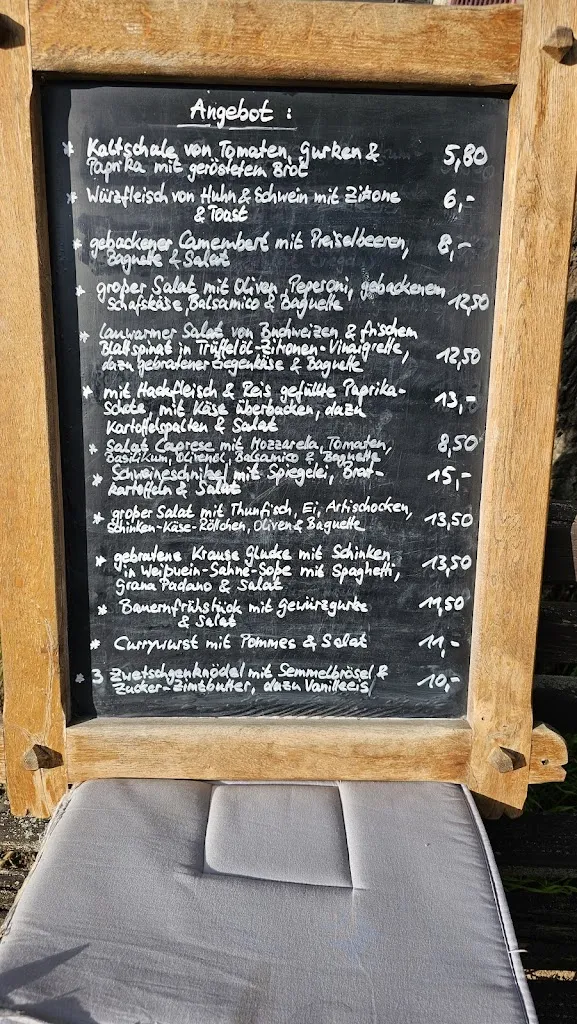 Angebot :
* Kaltschale von Tomaten, Gurken & 5,80
Paprika mit geröstetem Brot
* Würzfleisch von Huhn & Schwein mit Zitrone 6,-
& Toast
* gebackener Camembert mit Preiselbeeren, 8,-
Baguette & Salat
* großer Salat mit Oliven, Peperoni, gebackenem
Schafskäse, Balsamico & Baguette 12,50
* lauwarmer Salat von Buchweizen & frischem
Blattspinat in Trüffelöl-Zitronen-Vinaigrette, 12,50
dazu gebratener Ziegenkäse & Baguette
* mit Hackfleisch & Reis gefüllte Paprika- 13,-
Schote, mit Käse überbacken, dazu
Kartoffelspalten & Salat
* Salat Caprese mit Mozzarela, Tomaten, 8,50
Basilikum, Olivenöl, Balsamico & Baguette
* Schweineschnitzel mit Spiegelei, Brat- 15,-
kartoffeln & Salat
* großer Salat mit Thunfisch, Ei, Artischocken, 13,50
Schinken-Käse-Röllchen, Oliven & Baguette
* gebratene Krause Glucke mit Schinken 13,50
in Weißwein-Sahne-Soße mit Spaghetti,
Grana Padano & Salat
* Bauernfrühstück mit Gewürzgurke 11,50
& Salat
* Currywurst mit Pommes & Salat 11,-
* 3 Zwetschgenknödel mit Semmelbrösel & 10,-
Zucker-Zimtbutter, dazu Vanilleeis